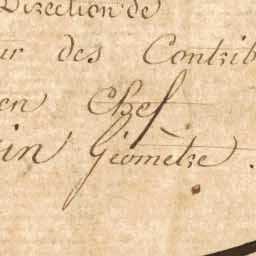 Direction de
des Contrib
en Chef
Géomètre.